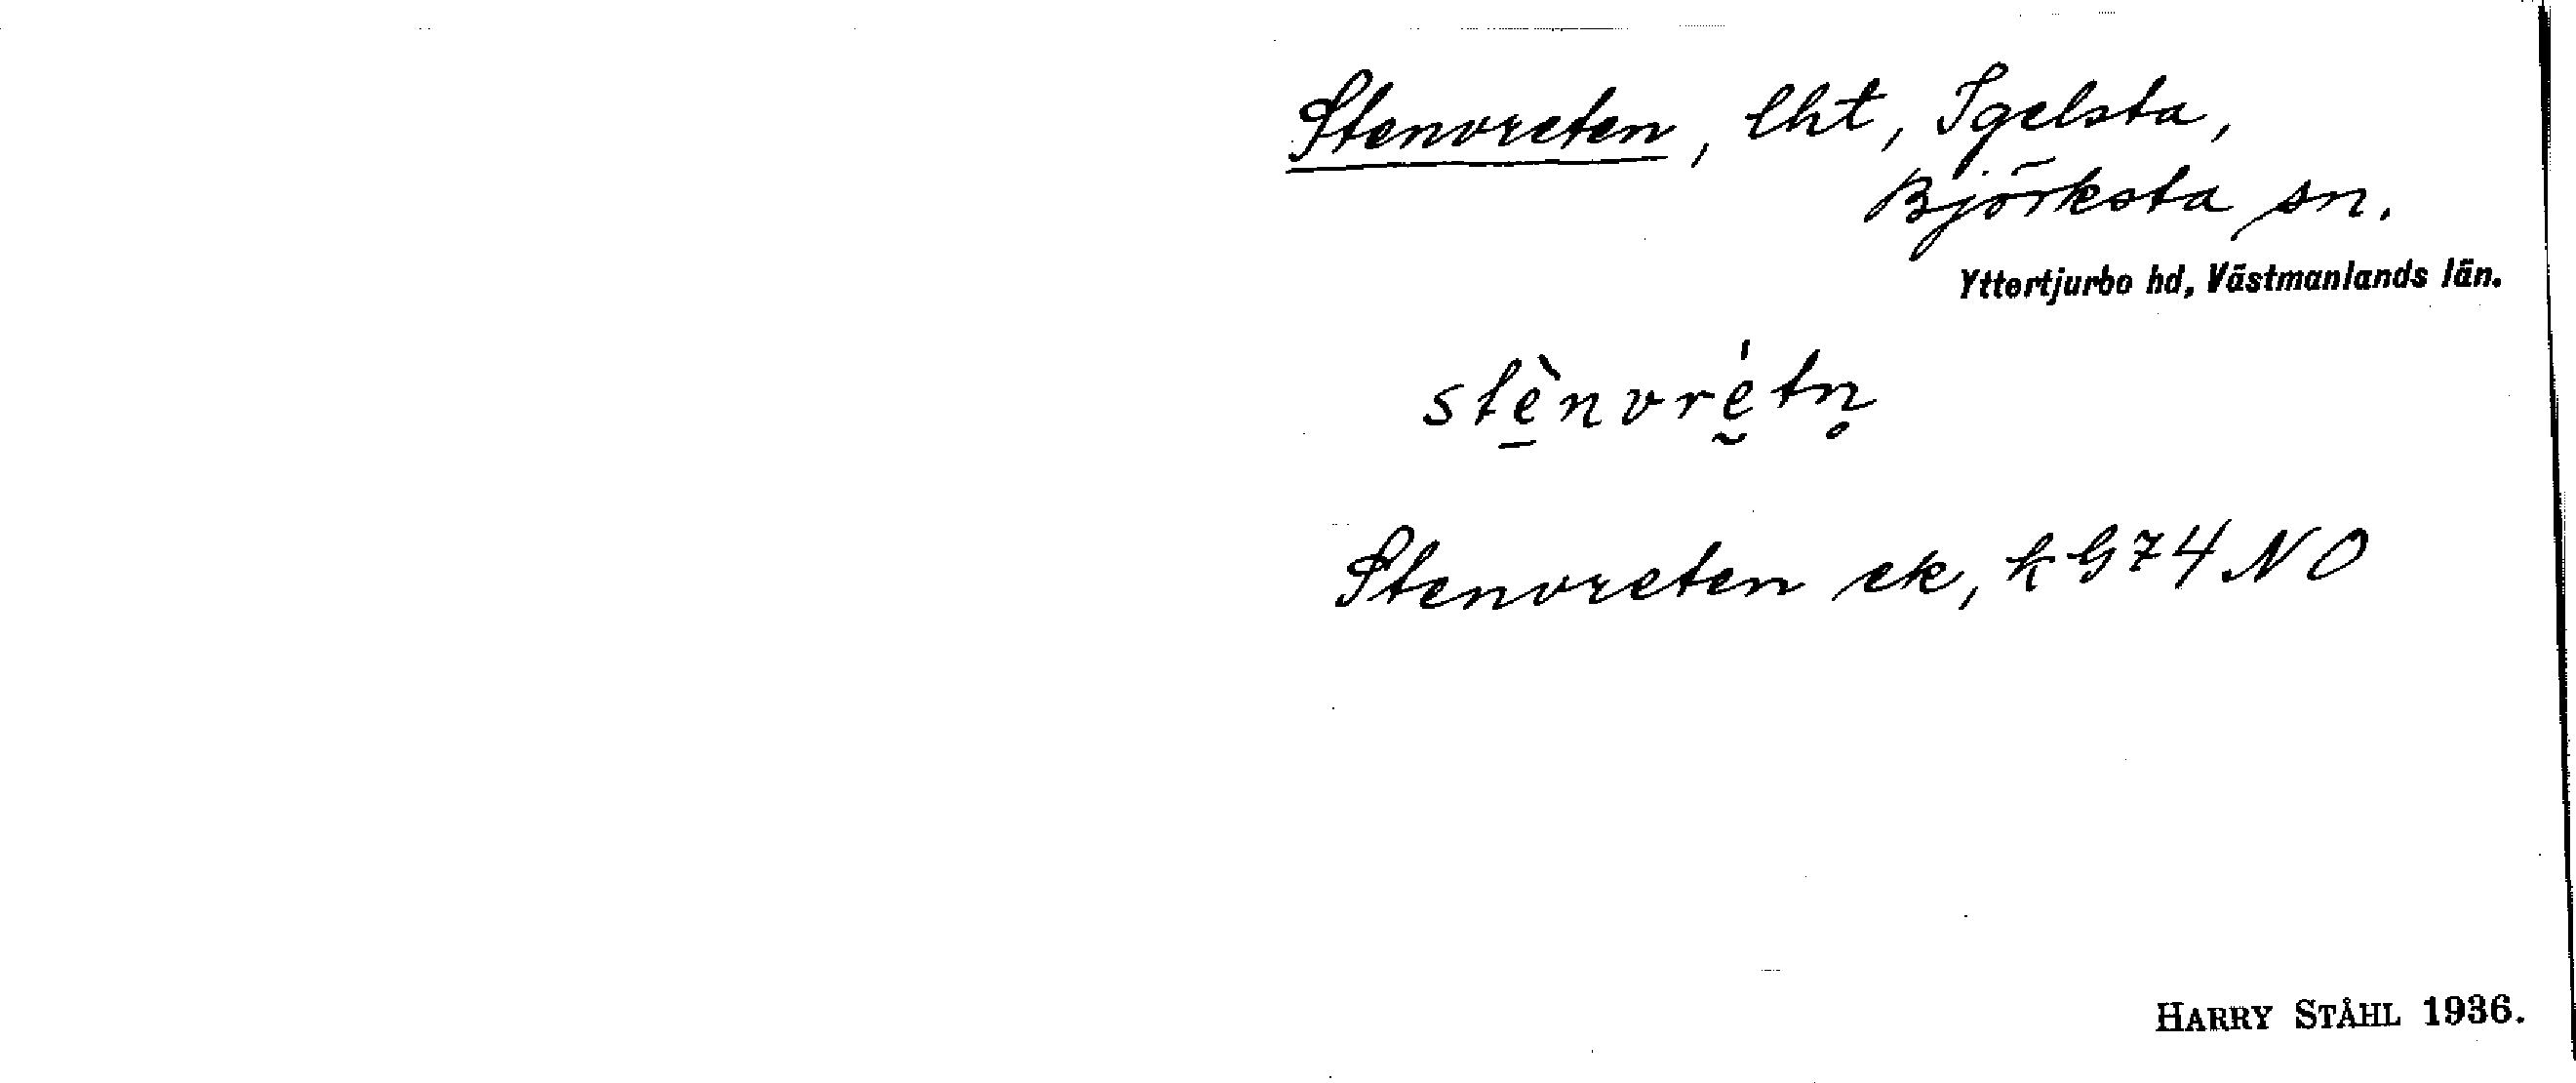 Stenvreten, lht, Igelsta,
Björksta sn.
Yttertjurbo hd, Västmanlands län.
stè̱nvrḛ́tn̥
Stenvreten ek, k G74 NO
HARRY STÅHL 1936.